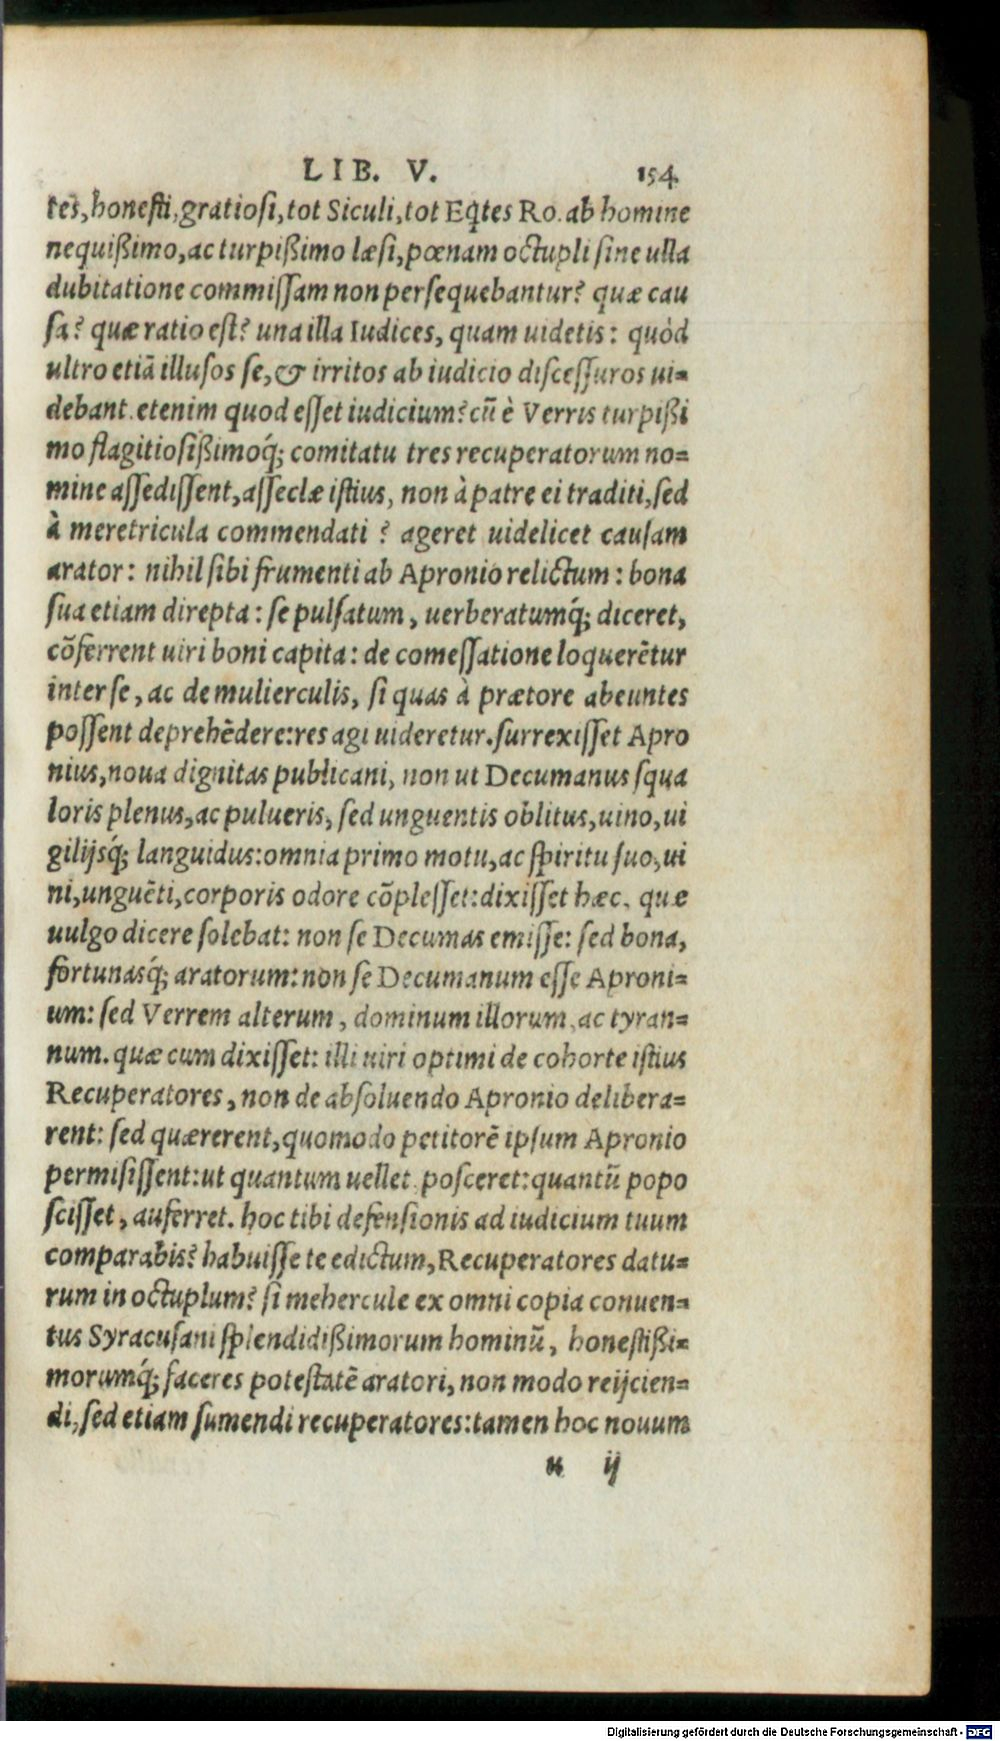 LIB. V. 154
tes, honesti, gratiosi, tot Siculi, tot Eq̃tes Ro. ab homine
nequißimo, ac turpißimo læsi, pœnam octupli sine ulla
dubitatione commissam non persequebantur? quæ cau
sa? quæ ratio est? una illa Iudices, quam uidetis: quòd
ultro etiā illusos se, & irritos ab iudicio discessuros ui=
debant. etenim quod esset iudicium? cū è Verris turpißi
mo flagitiosißimoq́; comitatu tres recuperatorum no=
mine assedissent, asseclæ istius, non à patre ei traditi, sed
à meretricula commendati ? ageret uidelicet causam
arator: nihil sibi frumenti ab Apronio relictum: bona
sua etiam direpta: se pulsatum, uerberatumq́; diceret,
cōferrent uiri boni capita: de comessatione loquerētur
inter se, ac de mulierculis, si quas à prætore abeuntes
possent deprehēdere: res agi uideretur. surrexisset Apro
nius, noua dignitas publicani, non ut Decumanus squa
loris plenus, ac pulueris, sed unguentis oblitus, uino, ui
gilijsq́; languidus: omnia primo motu, ac spiritu suo, ui
ni, unguēti, corporis odore cōplesset: dixisset hæc, quæ
uulgo dicere solebat: non se Decumas emisse: sed bona,
fortunasq́; aratorum: non se Decumanum esse Aproni=
um: sed Verrem alterum, dominum illorum, ac tyran=
num. quæ cum dixisset: illi uiri optimi de cohorte istius
Recuperatores, non de absoluendo Apronio delibera=
rent: sed quærerent, quomodo petitorē ipsum Apronio
permisissent: ut quantum uellet posceret: quantū popo
scisset, auferret. hoc tibi defensionis ad iudicium tuum
comparabis? habuisse te edictum, Recuperatores datu=
rum in octuplum? si mehercule ex omni copia conuen=
tus Syracusani splendidißimorum hominū, honestißi=
morumq́; faceres potestatē aratori, non modo reijcien=
di, sed etiam sumendi recuperatores: tamen hoc nouum
u ij
Digitalisierung gefördert durch die Deutsche Forschungsgemeinschaft - DFG